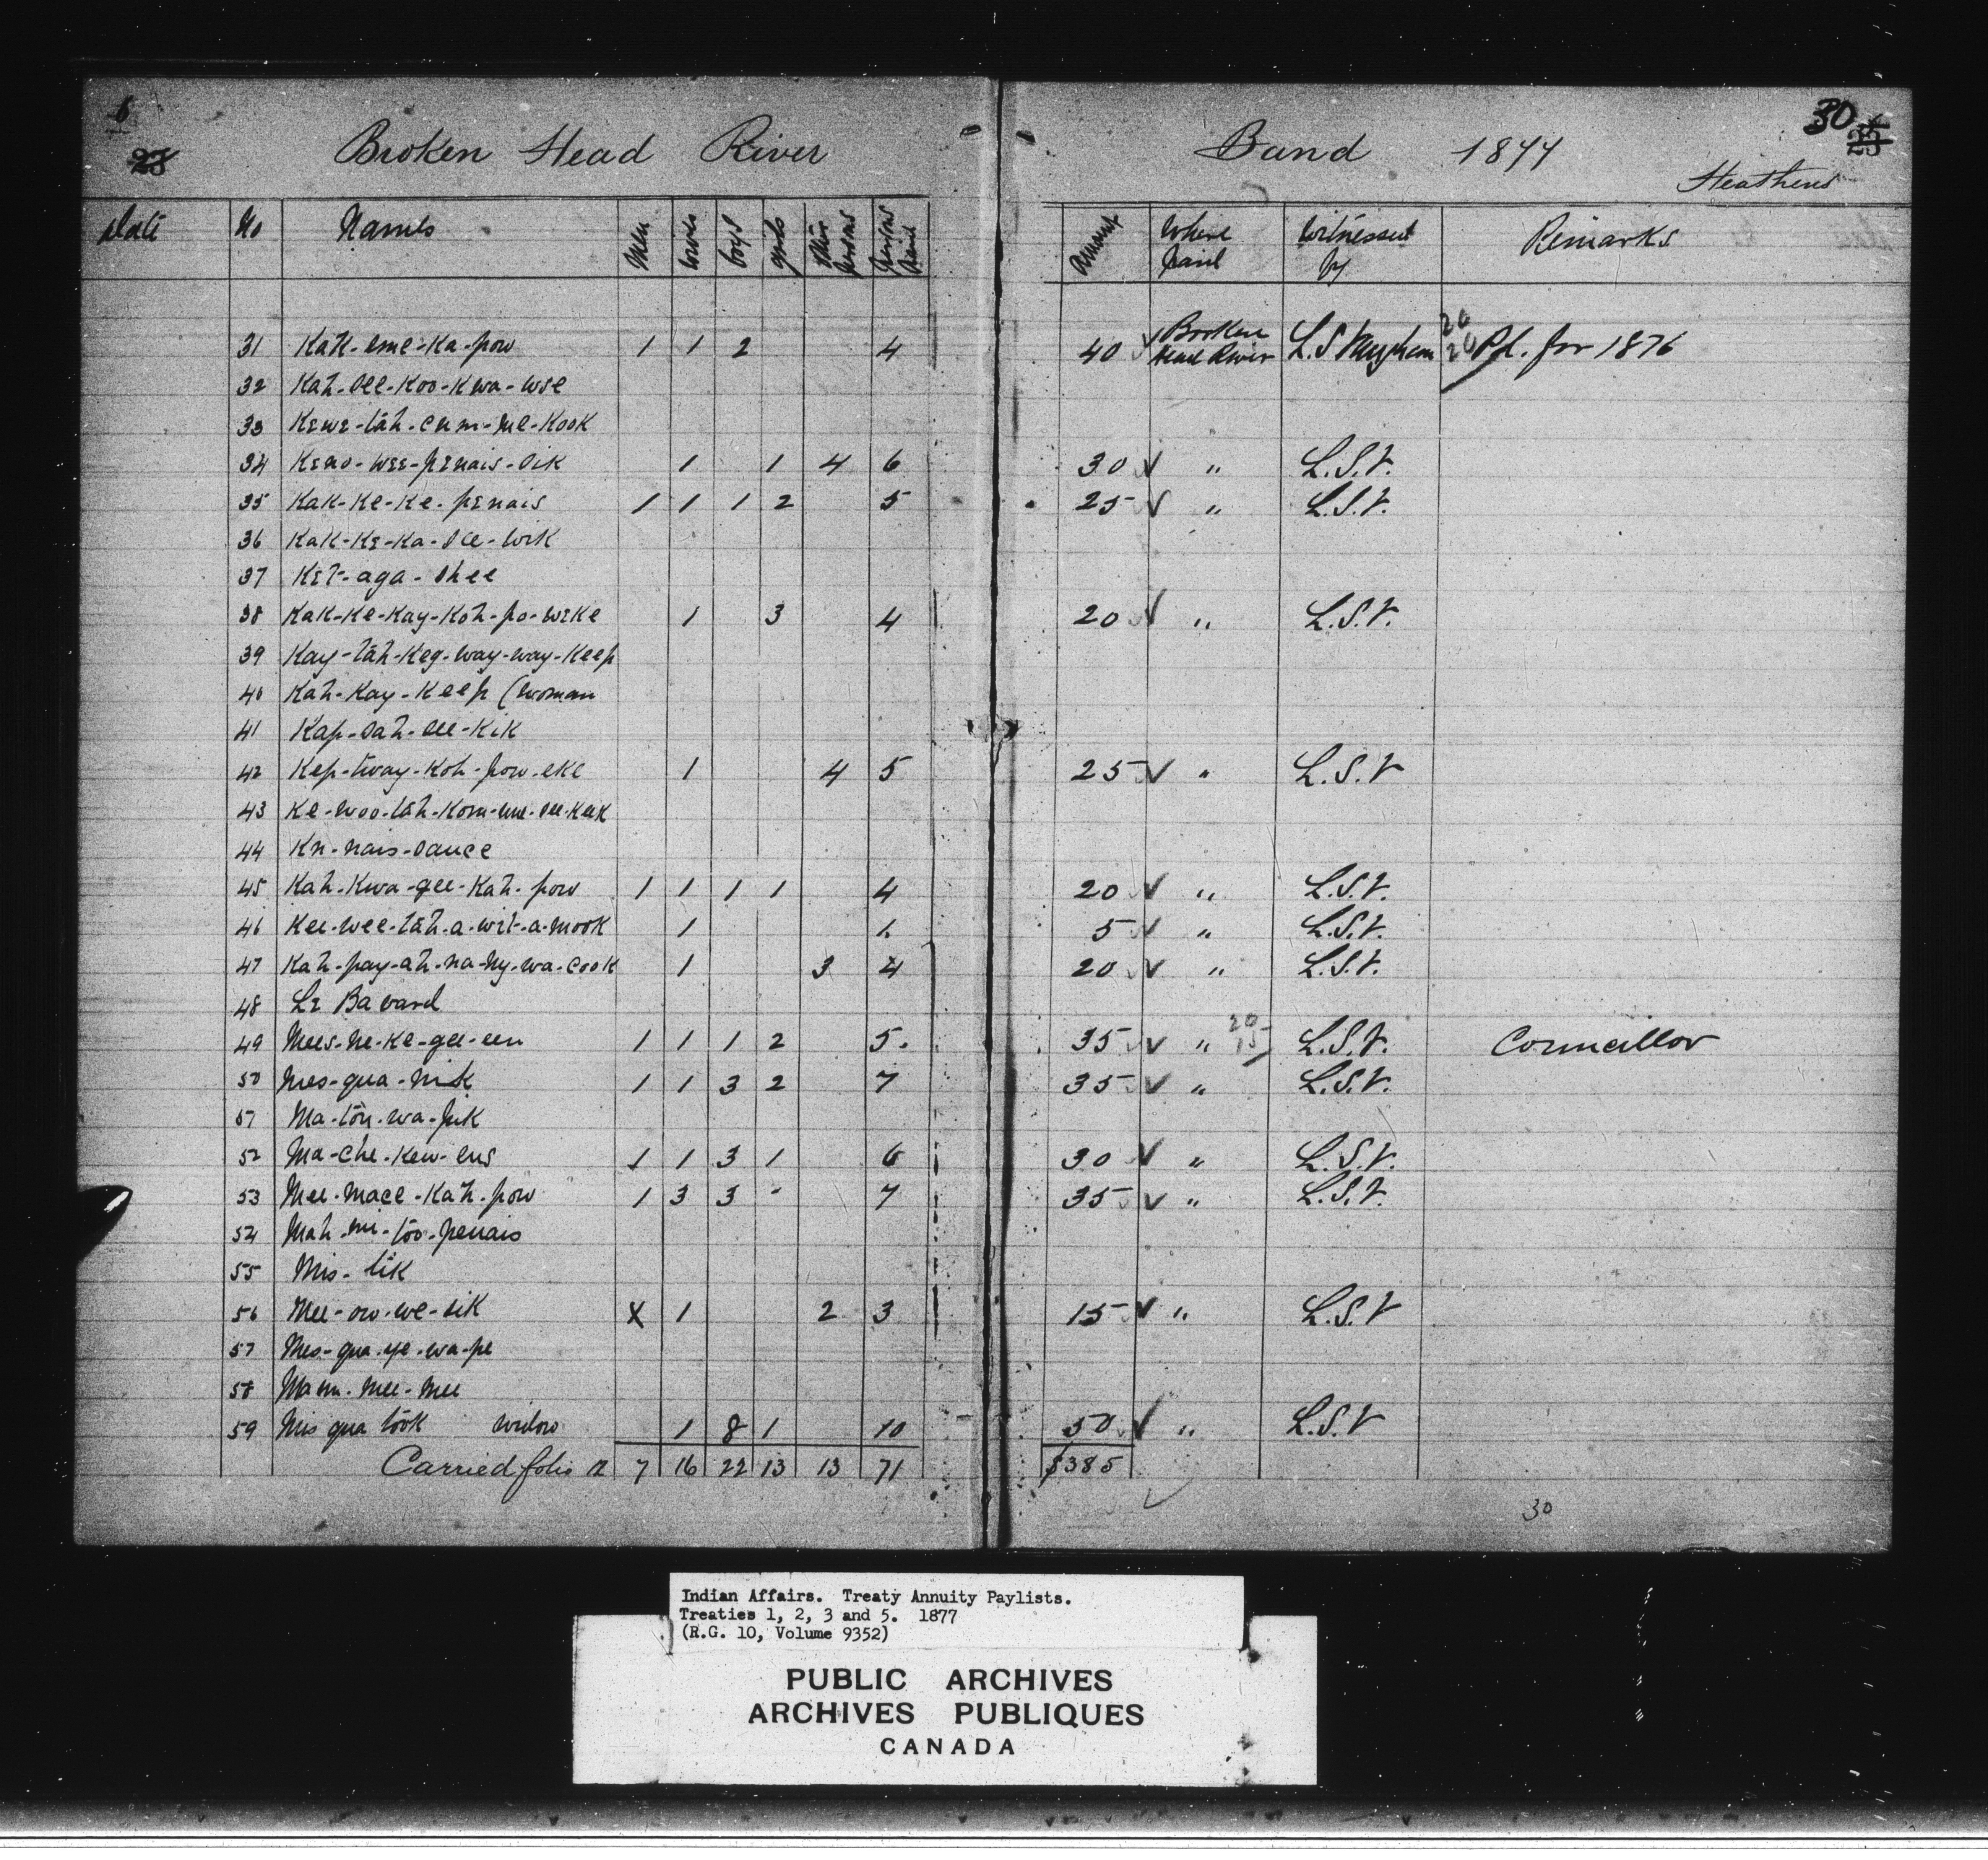 6
25
Broken Head River
Band 1877
30
25
Heathens
Date No Names Men women boys girls other persons persons Paid Amount Where paid Witnessed by Remarks
31 1 1 2 4 40 √ Broken Head River L.S 20 20 Pd. for 1876
32 Kah-see-Koo-Kwa-wse
33 Kewe-tah-cum-me-Kook
34 Keno-wee-penais-sik 1 1 4 6 30 √ " L.S.V.
35 Kak-Ke-Ke-penais 1 1 1 2 5 25 √ " L.S.V.
36 Kak-Ke-Ka-see-wik
37 Ket-aga-shee
38 Kak-Ke-Kay-Koh-po-weke 1 3 4 20 √ " L.S.V.
39 Kay-tah-Keg-way-way-Keep
40 Kah-Kay-Keep (woman
41 Kap-sah-see-Kik
42 Kep-tway-Koh-pow-eke 1 4 5 25 √ " L.S.V
43 Ke-woo-tah-Kom-me-see-Keek
44 Kn-nais-sance
45 Kah-Kwa-gee-Kah-pow 1 1 1 1 4 20 √ " L.S.V.
46 Kee-wee-tah-a-wit-a-mook 1 1. 5 √ " L.S.V.
47 Kah-pay-ah-na-ny-wa-cook 1 3 4 20 √ " L.S.V.
48 Le Bavard
49 Mees-ne-Ke-gee-een 1 1 1 2 5. 35 √ " 20 15 L.S.V. Councillor
50 Mes-qua-nik 1 1 3 2 7 35 √ " L.S.V.
51
52 Ma-che-Kew-ens 1 1 3 1 6 30 √ " L.S.V.
53 Mee-mace-Kah-pow 1 3 3 - 7 35 √ " L.S.V.
54 Mah-ni-too-penais
55 Mis-tik
56 Mee-ow-we-sik X 1 2 3 15 √ " L.S.V
57 Mes-qua-ye-wa-pe
58 Mam-mee-mee
59 Mis qua took widow 1 8 1 10 50 √ " L.S.V
Carried folio 7 16 22 13 13 71 $385
30
Indian Affairs. Treaty Annuity Paylists.
Treaties 1, 2, 3 and 5. 1877
(R.G. 10, Volume 9352)
PUBLIC ARCHIVES
ARCHIVES PUBLIQUES
CANADA